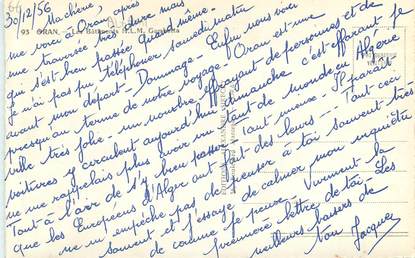 30/12/56
93 ORAN. - Les Bâtiments H.L.M. Gambetta
Ma chérie,
me voici à Oran, après
une traversée très dure mais
qui s'est bien passée quand même.
Je n'ai pas pu téléphoner samedi matin
avant mon départ - Dommage - Enfin nous voici
presqu'au terme de notre voyage. Oran est une
ville très jolie - un nombre effrayant de personnes et de
voitures y circulent aujourd'hui dimanche c'est effarant je
ne me rappelais plus avoir vu tant de monde en Algérie
Tout à l'air de s'y bien passer tant mieux - Il paraît
que les Européens d'Alger ont fait des leurs - Tout ceci
ne m'empêche pas de penser à toi souvent très
souvent et j'essaye de calmer mon inquiétude
de comme je peux. Vivement la
première lettre de toi - Les
meilleurs baisers de
ton Jacques